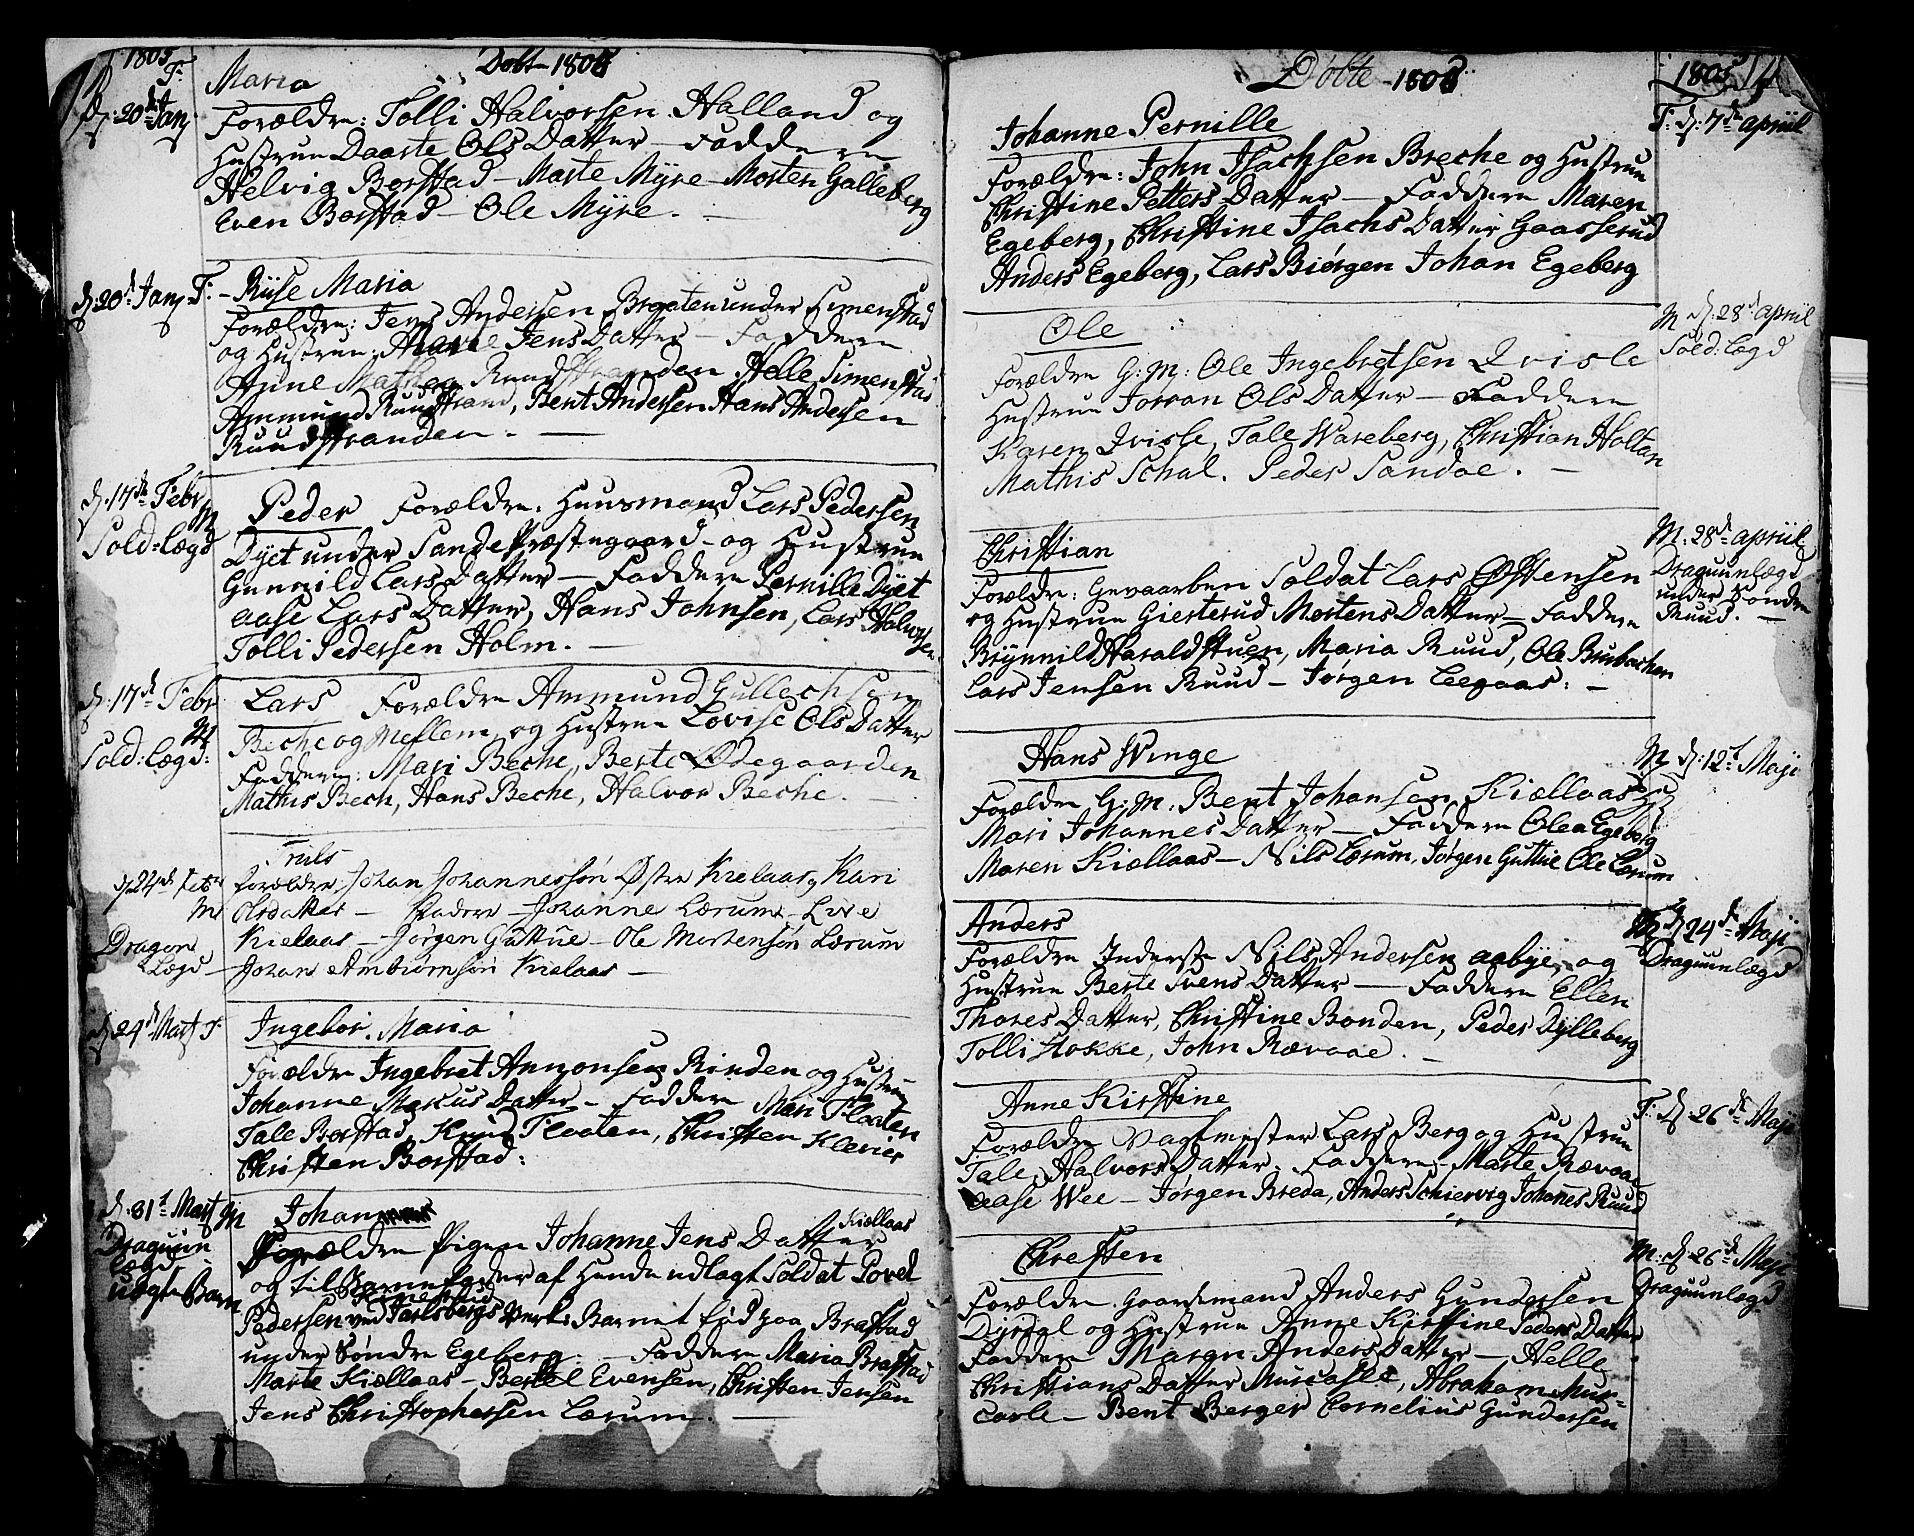 1805
Døbte 1805
d: 20de Janj
F:
Maria
Forældre: Tolli Halvorsen Halland og
Hustrue Daarte Ols Datter – Faddere
Helvig Borstad – Marte Myre – Morten Galleberg
Even Borstad – Ole Myre. –
d: 20d Janj F:
Riise Maria
Forældre: Jens Andersen Bråten under Simenstad
og Hustrue: Jens Datter – Faddere
Ruudstranden Helle Simenstad
Ammund Ruudstrand, Bent Andersen Hans Andersen
Ruudstranden. –
d: 17de Febr
M
Sold: Lægd
Peder Forældre: Huusmand Lars Pedersen
Dyet under Sande Præstegaard – og Hustrue
Gunnild Lars Datter – Faddere Pernille Dyet
Aase Lars Datter, Hans Johnsen, Lars Halvorsen
Tolli Pedersen Holm. –
d: 17de Febr
M
Sold: Lægd:
Lars Forældre Ammund Gullachsen
Beche og Mellem og Hustrue Lovise Ols Datter
Faddere: Mari Beche, Berte Ødegaarden
Mathis Bech, Hans Beche, Halvor Beche. –
d: 24de Febr
M
Dragon
Lægd
Truls
Forældre: Johan Johannessøn Østre Kielaas, Kari
Olsdatter – Fadere – Johanne Lærum – Live
Kielaas – Jørgen Guttue – Ole Mortensøn Lærum
Johan Ambiørnsøn Kielaas –
d: 24de Mart F
Ingebor Maria
Forældre Ingebret Annonsen Rinden og Hustrue
Johanne Markus Datter – Faddere Mari Floaten
Tale Borstad, Knud Floaten, Christen Klever
Christen Borstad:
d: 31t Mart M
Draguun
lægd
uægte Barn
Johan
Forældre Pigen Johanne Jens Datter Kiellaas
og til Barnefader af Hende udlagt Soldat Povel
Pedersen ved Jarlsbergs Verk: Barnet fød paa Brastad
under Søndre Egeberg. – Faddere Maria Brastad
Marte Kiellaas – Bertel Evensen, Christen Jensen
Jens Christophersen Lærum. –
Døbte 1805
1805
F: d: 7de April
Johanne Pernille
Forældre: John Isachsen Breche og Hustrue
Christine Petters Datter – Faddere Maren
Egeberg, Christine Isachs Datter Gaasserud
Anders Egeberg, Lars Biørgen Johan Egeberg
M d: 28de April
Sold: Lægd
Ole
Forældre G: M: Ole Ingebretsen Qvisle
Hustrue Joran Ols Datter – Faddere
Karen Qvisle, Tale Wareberg, Christian Holtan
Mathis Schal. Peder Sandoe. –
M. 28de April
Draguunlægd
under Søndre
Ruud. –
Christian
Forældre: Gevaarben Soldat Lars Østensen
og Hustrue Giesterud Mortens Datter – Faddere
Brynnild Haraldstuen, Maria Ruud, Ole Brubachen
Lars Jensen Ruud – Jørgen Leegaas: –
M d: 12t Maji
Hans Winge
Forældre G: M. Bent Johansen Kiællaas og
Mari Johannes Datter – Faddere Olea Egeberg
Maren Kiellaas – Nils Lærum, Jørgen Guttue Ole Lærum
M d: 24de Maji
Draguunlægd
Anders
Forældre Inderste Nils Andersen Aabye, og
Hustrue Berte Svens Datter – Faddere Ellen
Thores Datter, Christine Bonden, Peder Dylleberg
Tolli Hokke, John Rævaae. –
F: d: 26de Maji
Anne Kirstine
Forældre Vagtmester Lars Berg og Hustrue
Tale Halvors Datter. Faddere: Marte Rævaae
Aase Wee – Jørgen Breda, Anders Schiervig Johannes Ruud
M. d: 26de Maji
Draguunlægd
Chresten
Forældre Gaardmand Anders Gundersen
Dyrdal og Hustrue Anne Kirstine Peders Datter
Faddere Maren Anders Datter – Helle
Christians Datter Murcasle, Abraham Mur-
casle – Bent Berger Cornelius Gundersen